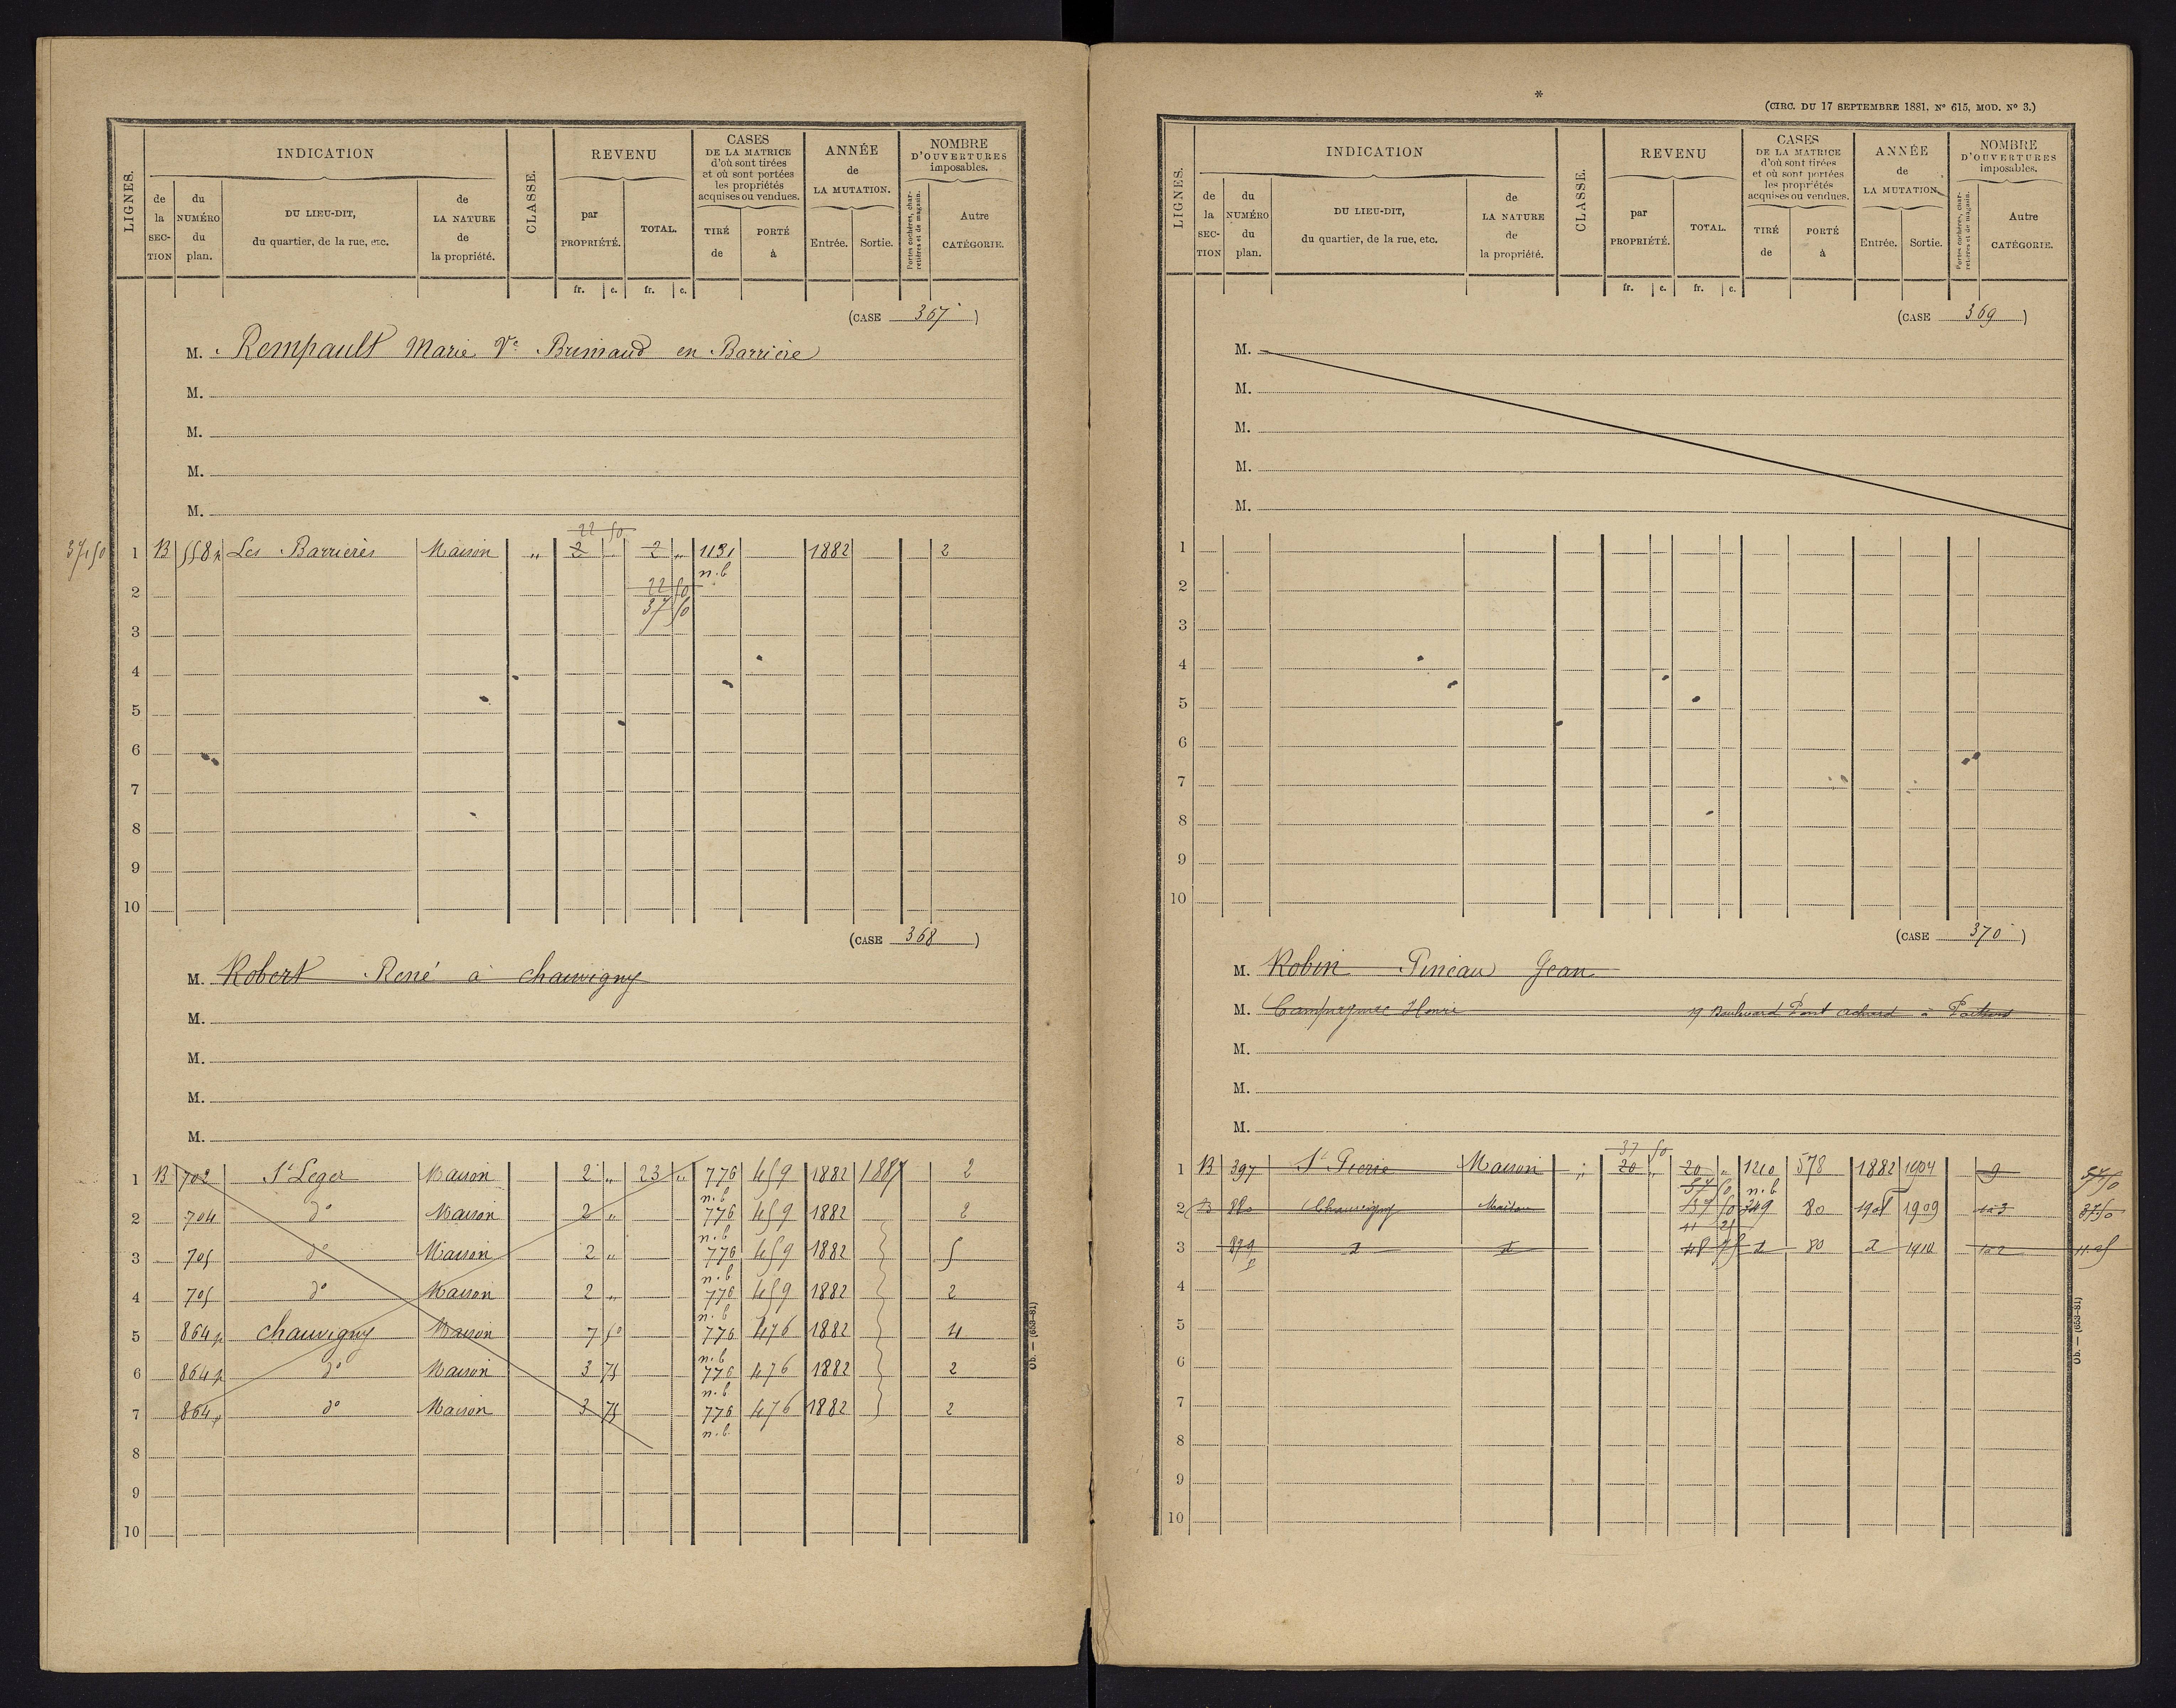 LIGNES.
INDICATION
de la SECTION
du NUMÉRO du plan.
DU LIEU-DIT, du quartier, de la rue, etc.
de LA NATURE de la propriété.
CLASSE.
REVENU
par PROPRIÉTÉ.
TOTAL.
CASES DE LA MATRICE d'où sont tirées et où sont portées les propriétés acquises ou vendues.
TIRÉ de
PORTÉ à
ANNÉE de LA MUTATION.
Entrée.
Sortie.
NOMBRE D'OUVERTURES imposables.
Portes cochères, charretières et de magasin.
Autre CATÉGORIE.
fr. c. fr. c.
(CASE 367)
M. Rempault Marie Ve Brunaud en Barrière
M.
M.
M.
M.
22 50
37,50 1 B 558p Les Barrières Maison " 2 2 " 1131 1882 2
n.b
2 22 50
37 50
3
4
5
6
7
8
9
10
(CASE 368)
M. Robert René à chauvigny
M.
M.
M.
M.
1 B 702 St Leger Maison 2 " 23 " 776 459 1882 1887 2
n.b
2 704 do Maison 2 " 776 459 1882 2
n.b
3 705 do Maison 2 " 776 459 1882 5
n.b
4 705 do Maison 2 " 776 459 1882 2
n.b
5 864p chauvigny Maison 7 50 776 476 1882 4
n.b
6 864p do Maison 3 75 776 476 1882 2
n.b
7 864p do Maison 3 75 776 476 1882 2
n.b.
8
9
10
Ob. — (653-81)
*
(CIRC. DU 17 SEPTEMBRE 1881, No 615, MOD. No 3.)
LIGNES.
INDICATION
de la SECTION
du NUMÉRO du plan.
DU LIEU-DIT, du quartier, de la rue, etc.
de LA NATURE de la propriété.
CLASSE.
REVENU
par PROPRIÉTÉ.
TOTAL.
CASES DE LA MATRICE d'où sont tirées et où sont portées les propriétés acquises ou vendues.
TIRÉ de
PORTÉ à
ANNÉE de LA MUTATION.
Entrée.
Sortie.
NOMBRE D'OUVERTURES imposables.
Portes cochères, charretières et de magasin.
Autre CATÉGORIE.
fr. c. fr. c.
(CASE 369)
M.
M.
M.
M.
M.
1
2
3
4
5
6
7
8
9
10
(CASE 370)
M. Robin Pineau Jean
M. Henri 19 Boulevard Pont achard à
M.
M.
M.
37 50
1 B 397 St Pierre Maison 20 20 " 1210 578 1882 1904 9
n.b
2 B 880 Chauvigny Maison 37 50 249 80 1908 1909 1à3 37.50
11 25
3 879p d d 48 75 d 80 d 1910 1à2 11.25
4
5
6
7
8
9
10
Ob. — (653-81)